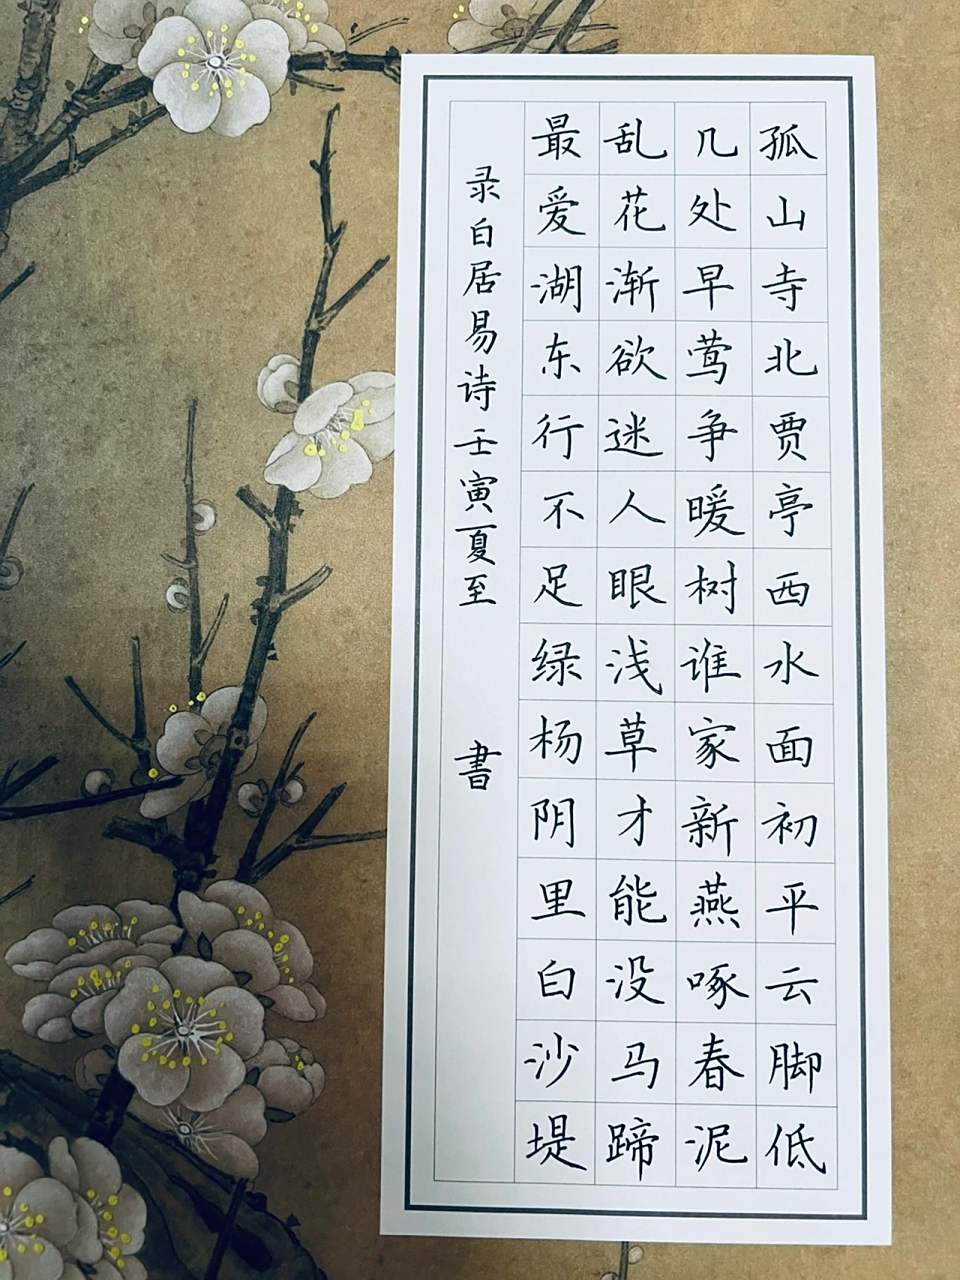 孤山寺北贾亭西水面初平云脚低
几处早莺争暖树谁家新燕啄春泥
乱花渐欲迷人眼浅草才能没马蹄
最爱湖东行不足绿杨阴里白沙堤
录白居易诗壬寅夏至 書